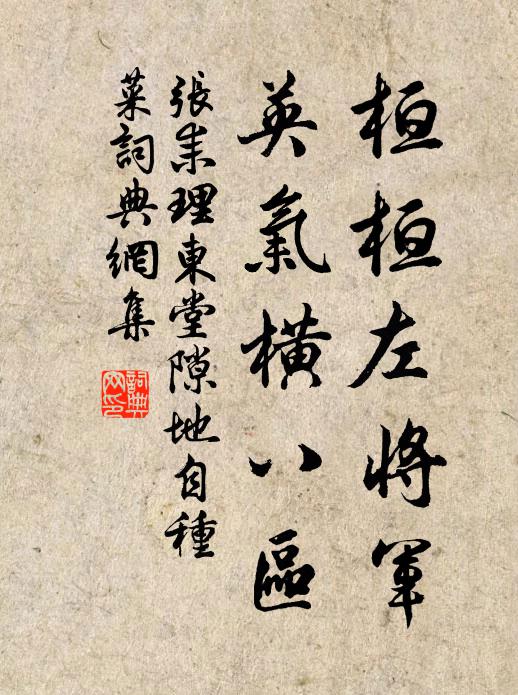 桓桓左將軍
英氣橫八區
張耒理東堂隙地自種
菜詞典網集
詞典
网印